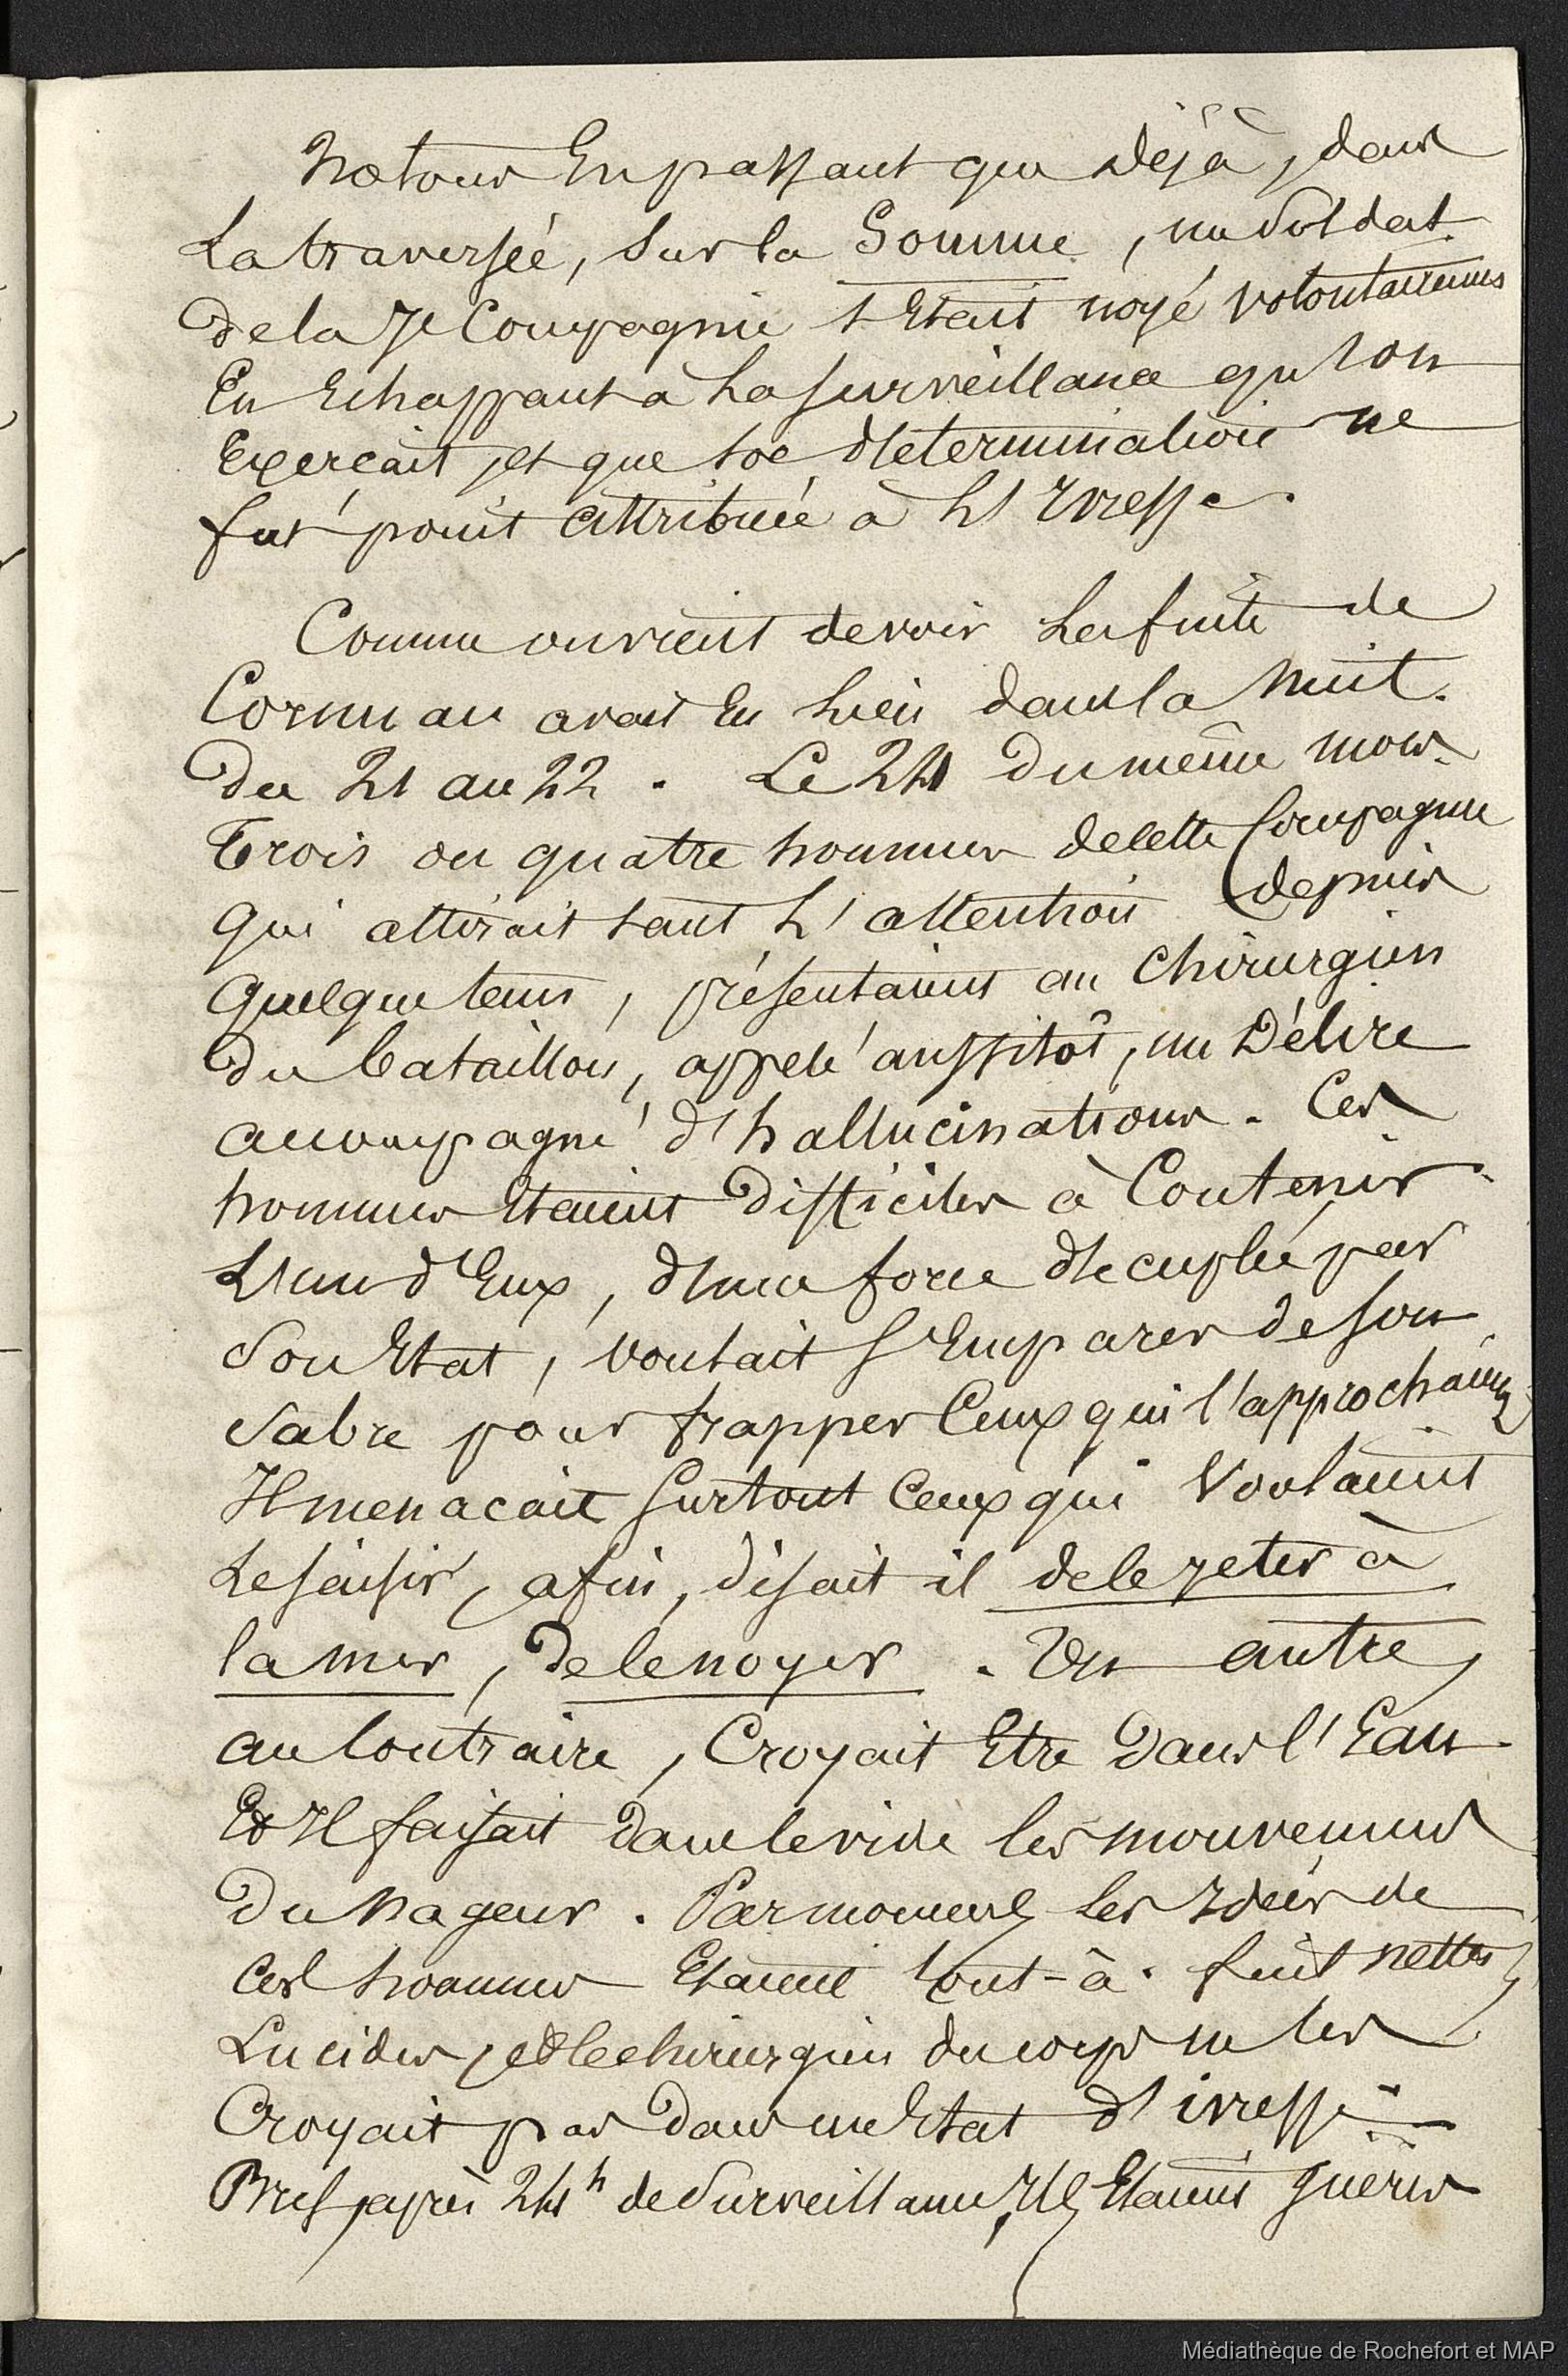 Notons En passant que Déjà, dans
La traversée, sur la Somme, un Soldat
de la 7e Compagnie s'Etait noyé volontairement
En Echappant à La surveillance qu'on
Exerçait, et que sa détermination ne
fut point attribuée à L'Ivresse.
Comme on vient de voir La fuite de
Cornuau avait Eu Lieu dans la Nuit
du 21 au 22. Le 24 du même mois
Trois ou quatre hommes de cette Compagnie
qui attirait tant L'attention depuis
quelque tems, présentaient au Chirurgien
du bataillon, appelé aussitôt, un Délire
accompagné d'hallucinations. Ces
hommes Etaient Difficiles à Contenir
L'un d'Eux, d'une force décuplée par
Son Etat, voulait S'Emparer de son
Sabre pour frapper Ceux qui l'approchaient
Il menaçait Surtout Ceux qui Voulaient
Le saisir, afin, disait il de le jeter à
la mer, de le noyer. Un autre,
au Contraire, Croyait Etre Dans l'Eau
Et Il faisait Dans le vide les mouvemens
Du Nageur. Par momens les Idées de
Ces hommes Etaient tout-à-fait nettes,
Lucides, et le chirurgien du corps ne les
Croyait pas Dans un Etat d'ivresse
Bref, après 24h de Surveillance, Ils Etaient guéris
Médiathèque de Rochefort et MAP